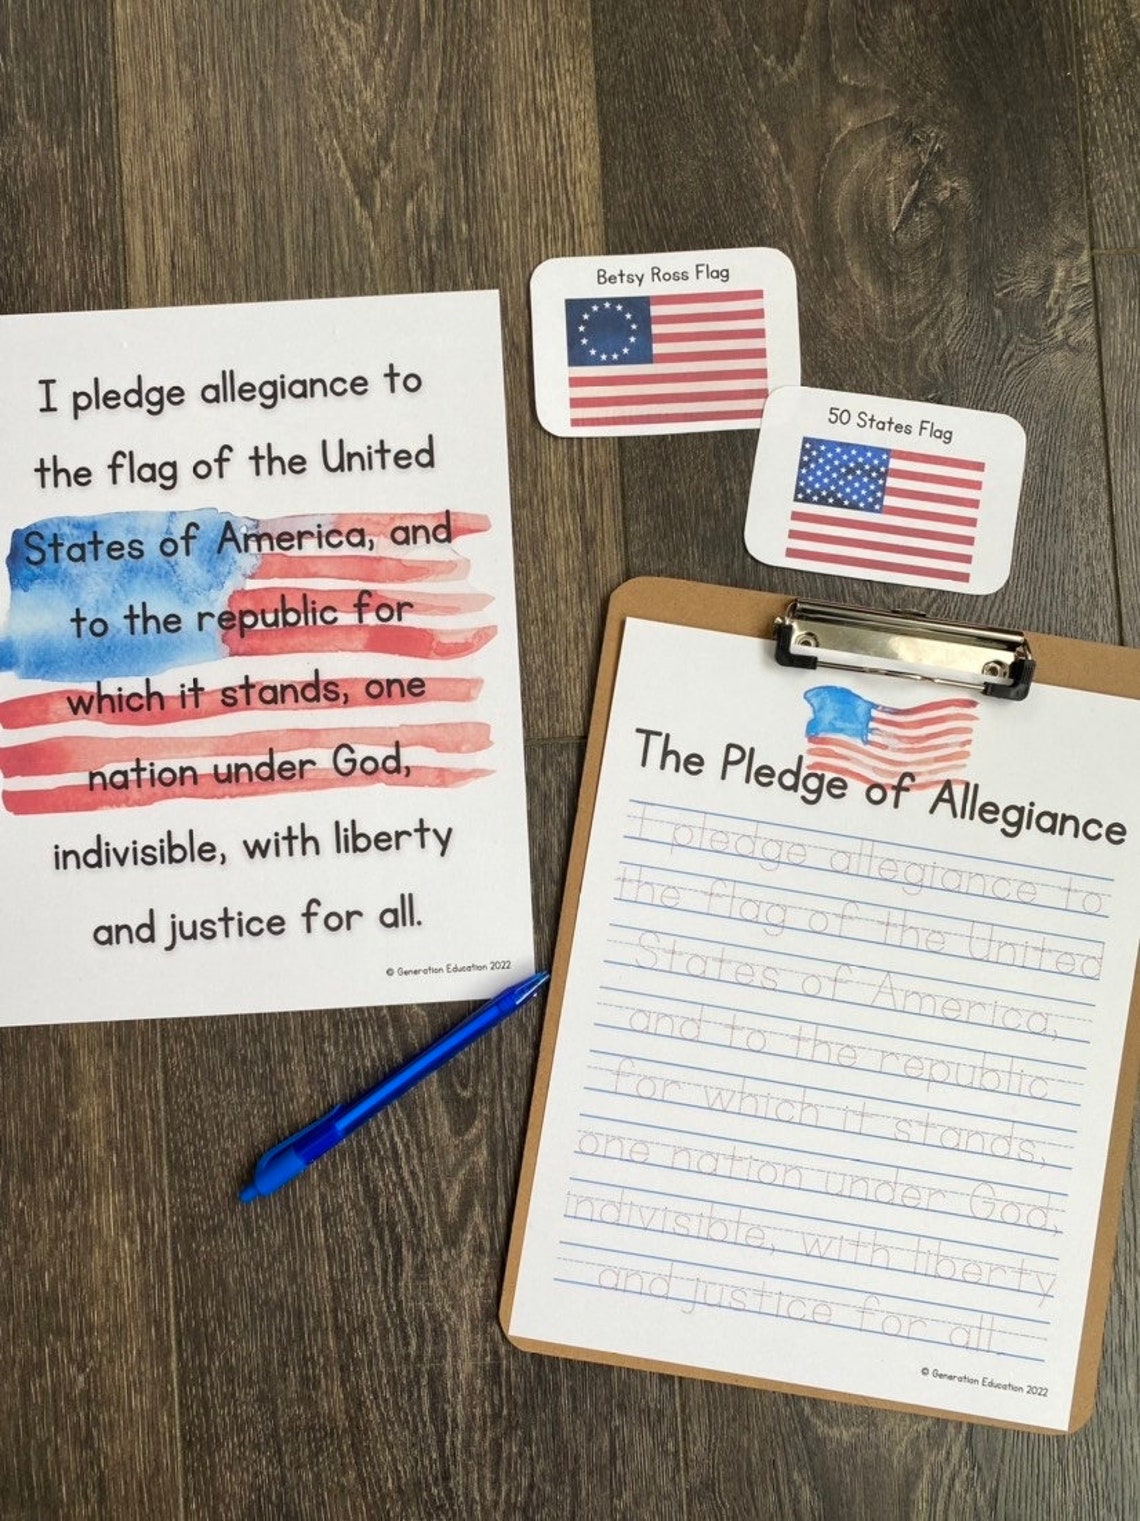 Betsy Ross Flag
50 States Flag
I pledge allegiance to
the flag of the United
States of America, and
to the republic for
which it stands, one
nation under God,
indivisible, with liberty
and justice for all.
© Generation Education 2022
The Pledge of Allegiance
I pledge allegiance to
the flag of the United
States of America,
and to the republic
for which it stands,
one nation under God,
indivisible, with liberty
and justice for all.
© Generation Education 2022